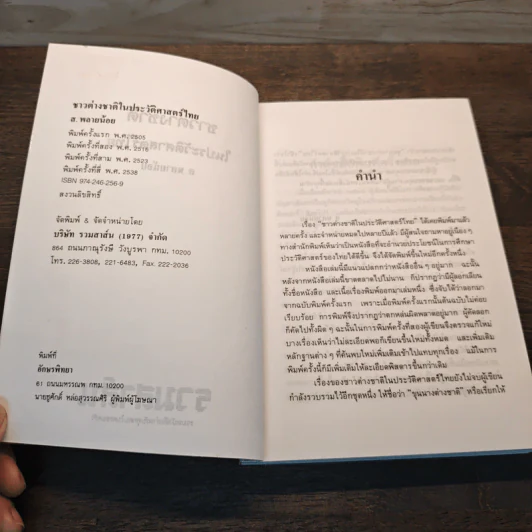 ชาวต่างชาติในประวัติศาสตร์ไทย
ส. พลายน้อย
พิมพ์ครั้งแรก พ.ศ. 2505
พิมพ์ครั้งที่สอง พ.ศ. 2516
พิมพ์ครั้งที่สาม พ.ศ. 2523
พิมพ์ครั้งที่สี่ พ.ศ. 2538
ISBN 974-246-256-9
สงวนลิขสิทธิ์
จัดพิมพ์ & จัดจำหน่ายโดย
บริษัท รวมสาส์น (1977) จำกัด
864 ถนนภาณุรังษี วังบูรพา กทม. 10200
โทร. 226-3808, 221-6483, Fax 222-2036
พิมพ์ที่
อักษรพิทยา
61 ถนนมหรรณพ กทม. 10200
นายชูศักดิ์ หล่อสุวรรณศิริ ผู้พิมพ์ผู้โฆษณา
คำนำ
เรื่อง "ชาวต่างชาติในประวัติศาสตร์ไทย" ได้เคยพิมพ์มาแล้ว
หลายครั้ง และจำหน่ายหมดไปหลายปีแล้ว มีผู้สนใจถามหาอยู่เนืองๆ
ทางสำนักพิมพ์เห็นว่าเป็นหนังสือที่จะอำนวยประโยชน์ในการศึกษา
ประวัติศาสตร์ของไทยได้ดีขึ้น จึงได้จัดพิมพ์ขึ้นใหม่อีกครั้งหนึ่ง
หนังสือเล่มนี้มีแนวแปลกกว่าหนังสืออื่น ๆ อยู่มาก ฉะนั้น
หลังจากหนังสือเล่มนี้ขาดตลาดไปไม่นาน ก็ปรากฏว่ามีผู้ลอกเลียน
ทั้งชื่อหนังสือ และเนื้อเรื่องพิมพ์ออกมาเล่มหนึ่ง ซึ่งจับได้ว่าลอกมา
จากฉบับพิมพ์ครั้งแรก เพราะเมื่อพิมพ์ครั้งแรกนั้นต้นฉบับไม่ค่อย
เรียบร้อย การพิมพ์จึงปรากฏว่าตกหล่นผิดพลาดอยู่มาก ผู้คัดลอก
ก็คัดไปทั้งผิด ๆ ฉะนั้นในการพิมพ์ครั้งที่สองผู้เขียนจึงตรวจแก้ใหม่
บางเรื่องเห็นว่าไม่ละเอียดพอก็เขียนขึ้นใหม่ทั้งหมด และเพิ่มเติม
หลักฐานต่าง ๆ ที่ค้นพบใหม่เพิ่มเติมเข้าไปแทบทุกเรื่อง แม้ในการ
พิมพ์ครั้งนี้ก็มีเพิ่มเติมให้ละเอียดพิสดารขึ้นกว่าเดิม
เรื่องของชาวต่างชาติในประวัติศาสตร์ไทยยังไม่จบผู้เขียน
กำลังรวบรวมไว้อีกชุดหนึ่ง ให้ชื่อว่า "ขุนนางต่างชาติ" หรือเรียกให้